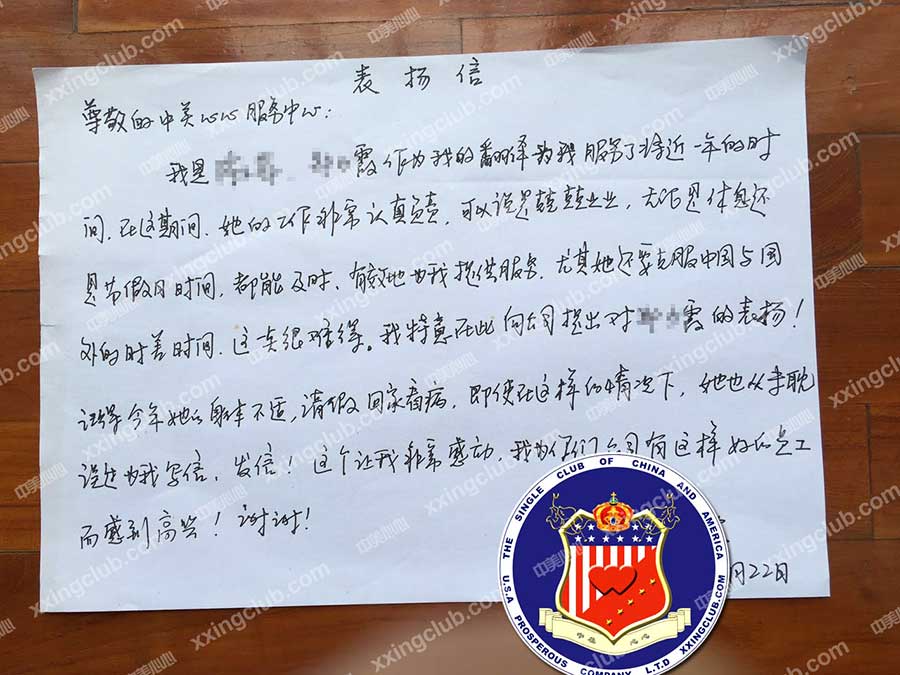 表扬信
尊敬的中美心心服务中心:
我是 霞作为我的翻译为我服务了将近一年的时
间,在这期间,她的工作非常认真负责,可以说是兢兢业业,无论是休息还
是节假日时间,都能及时、有效地为我提供服务,尤其她还要克服中国与国
外的时差时间,这真很难得。我特意在此向公司提出对 霞的表扬!
今年她的身体不适,请假回家看病,即使在这样的情况下,她也从未耽
误过为我写信,发信!这个让我非常感动,我为你们公司有这样好的员工
而感到高兴!谢谢!
月22日
THE SINGLE CLUB OF CHINA AND AMERICA
U.S.A PROSPEROUS COMPANY L.T.D XXINGCLUB.COM
中美心心
xxingclub.com